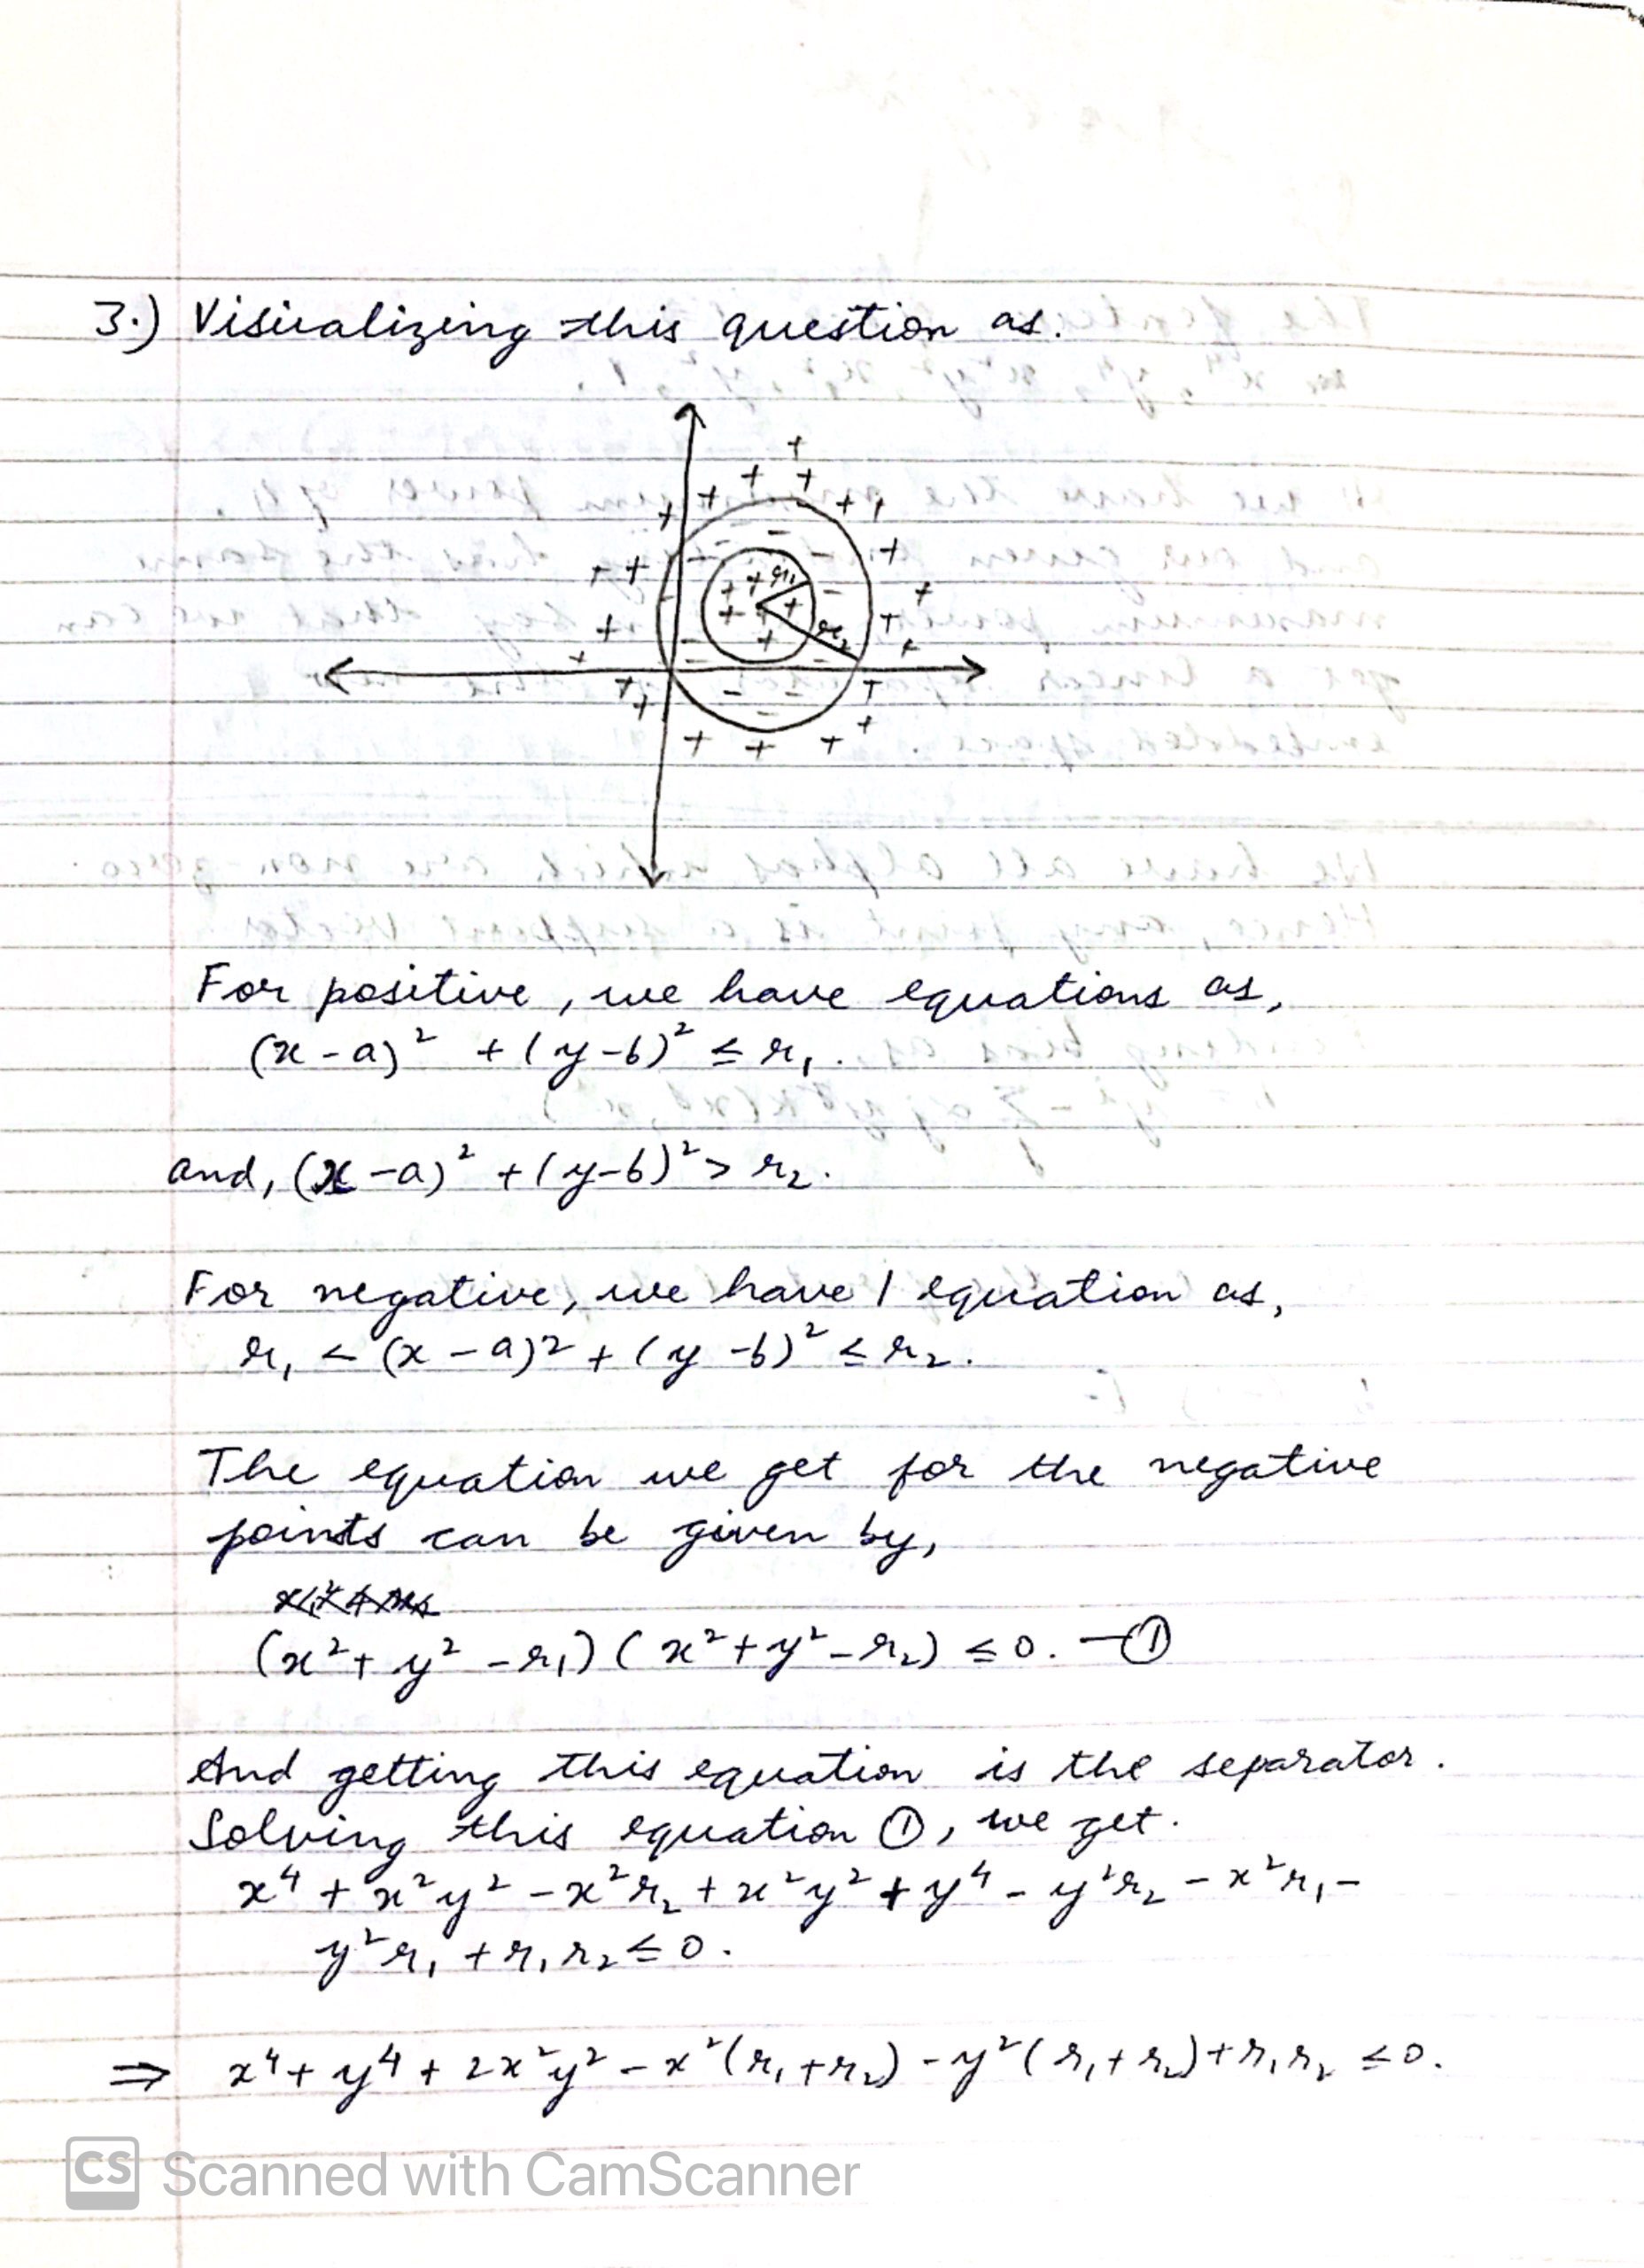 3.) Visualizing this question as.
r₁
r₂
For positive, we have equations as,
(x - a)² + (y - b)² ≤ r₁.
and, (x - a)² + (y - b)² > r₂.
For negative, we have 1 equation as,
r₁ < (x - a)² + (y - b)² ≤ r₂.
The equation we get for the negative
points can be given by,
(x² + y² - r₁) (x² + y² - r₂) ≤ 0. — ①
And getting this equation is the separator.
Solving this equation ①, we get.
x⁴ + x²y² - x²r₂ + x²y² + y⁴ - y²r₂ - x²r₁ -
y²r₁ + r₁r₂ ≤ 0.
⇒ x⁴ + y⁴ + 2x²y² - x²(r₁ + r₂) - y²(r₁ + r₂) + r₁r₂ ≤ 0.
CS Scanned with CamScanner